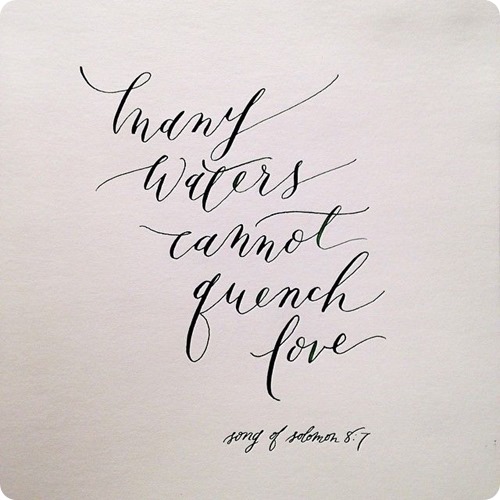 many
waters
cannot
quench
love
song of solomon 8:7